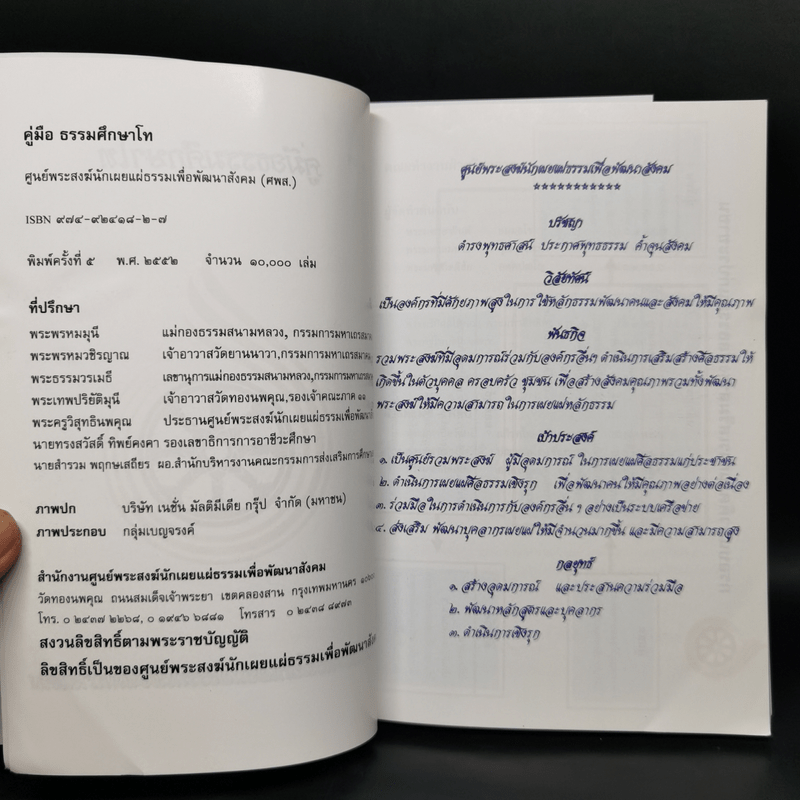 คู่มือ ธรรมศึกษาโท
ศูนย์พระสงฆ์นักเผยแผ่ธรรมเพื่อพัฒนาสังคม (ศพส.)
ISBN ๙๗๔-๙๒๔๑๘-๒-๗
พิมพ์ครั้งที่ ๕ พ.ศ. ๒๕๕๒ จำนวน ๑๐,๐๐๐ เล่ม
ที่ปรึกษา
พระพรหมมุนี แม่กองธรรมสนามหลวง, กรรมการมหาเถรสมาคม
พระพรหมวชิรญาณ เจ้าอาวาสวัดยานนาวา,กรรมการมหาเถรสมาคม
พระธรรมวรเมธี เลขานุการแม่กองธรรมสนามหลวง,กรรมการมหาเถรสมาคม
พระเทพปริยัติมุนี เจ้าอาวาสวัดทองนพคุณ,รองเจ้าคณะภาค ๑๑
พระครูวิสุทธินพคุณ ประธานศูนย์พระสงฆ์นักเผยแผ่ธรรมเพื่อพัฒนา
นายทรงสวัสดิ์ ทิพย์คงคา รองเลขาธิการการอาชีวะศึกษา
นายสำรวม พฤกษเสถียร ผอ.สำนักบริหารงานคณะกรรมการส่งเสริมการศึกษา
ภาพปก บริษัท เนชั่น มัลติมีเดีย กรุ๊ป จำกัด (มหาชน)
ภาพประกอบ กลุ่มเบญจรงค์
สำนักงานศูนย์พระสงฆ์นักเผยแผ่ธรรมเพื่อพัฒนาสังคม
วัดทองนพคุณ ถนนสมเด็จเจ้าพระยา เขตคลองสาน กรุงเทพมหานคร
โทร. ๐ ๒๔๓๗ ๒๒๖๘, ๐ ๑๙๔๖ ๖๘๘๑ โทรสาร ๐ ๒๔๓๘ ๘๙๗๓
สงวนลิขสิทธิ์ตามพระราชบัญญัติ
ลิขสิทธิ์เป็นของศูนย์พระสงฆ์นักเผยแผ่ธรรมเพื่อพัฒนา
ศูนย์พระสงฆ์นักเผยแผ่ธรรมเพื่อพัฒนาสังคม
***********
ปรัชญา
ดำรงพุทธศาสน์ ประกาศพุทธธรรม ค้ำจุนสังคม
วิสัยทัศน์
เป็นองค์กรที่มีศักยภาพสูงในการใช้หลักธรรมพัฒนาคนและสังคมให้มีคุณภาพ
พันธกิจ
รวมพระสงฆ์ที่มีอุดมการณ์ร่วมกับองค์กรอื่นๆ ดำเนินการเสริมสร้างศีลธรรมให้
เกิดขึ้นในตัวบุคคล ครอบครัว ชุมชน เพื่อสร้างสังคมคุณภาพรวมทั้งพัฒนา
พระสงฆ์ให้มีความสามารถในการเผยแผ่หลักธรรม
เป้าประสงค์
๑. เป็นศูนย์รวมพระสงฆ์ ผู้มีอุดมการณ์ ในการเผยแผ่ศีลธรรมแก่ประชาชน
๒. ดำเนินการเผยแผ่ศีลธรรมเชิงรุก เพื่อพัฒนาคนให้มีคุณภาพอย่างต่อเนื่อง
๓. ร่วมมือในการดำเนินการกับองค์กรอื่น ๆ อย่างเป็นระบบเครือข่าย
๔. ส่งเสริม พัฒนาบุคลากรเผยแผ่ให้มีจำนวนมากขึ้น และมีความสามารถสูง
กลยุทธ์
๑. สร้างอุดมการณ์ และประสานความร่วมมือ
๒. พัฒนาหลักสูตรและบุคลากร
๓. ดำเนินการเชิงรุก